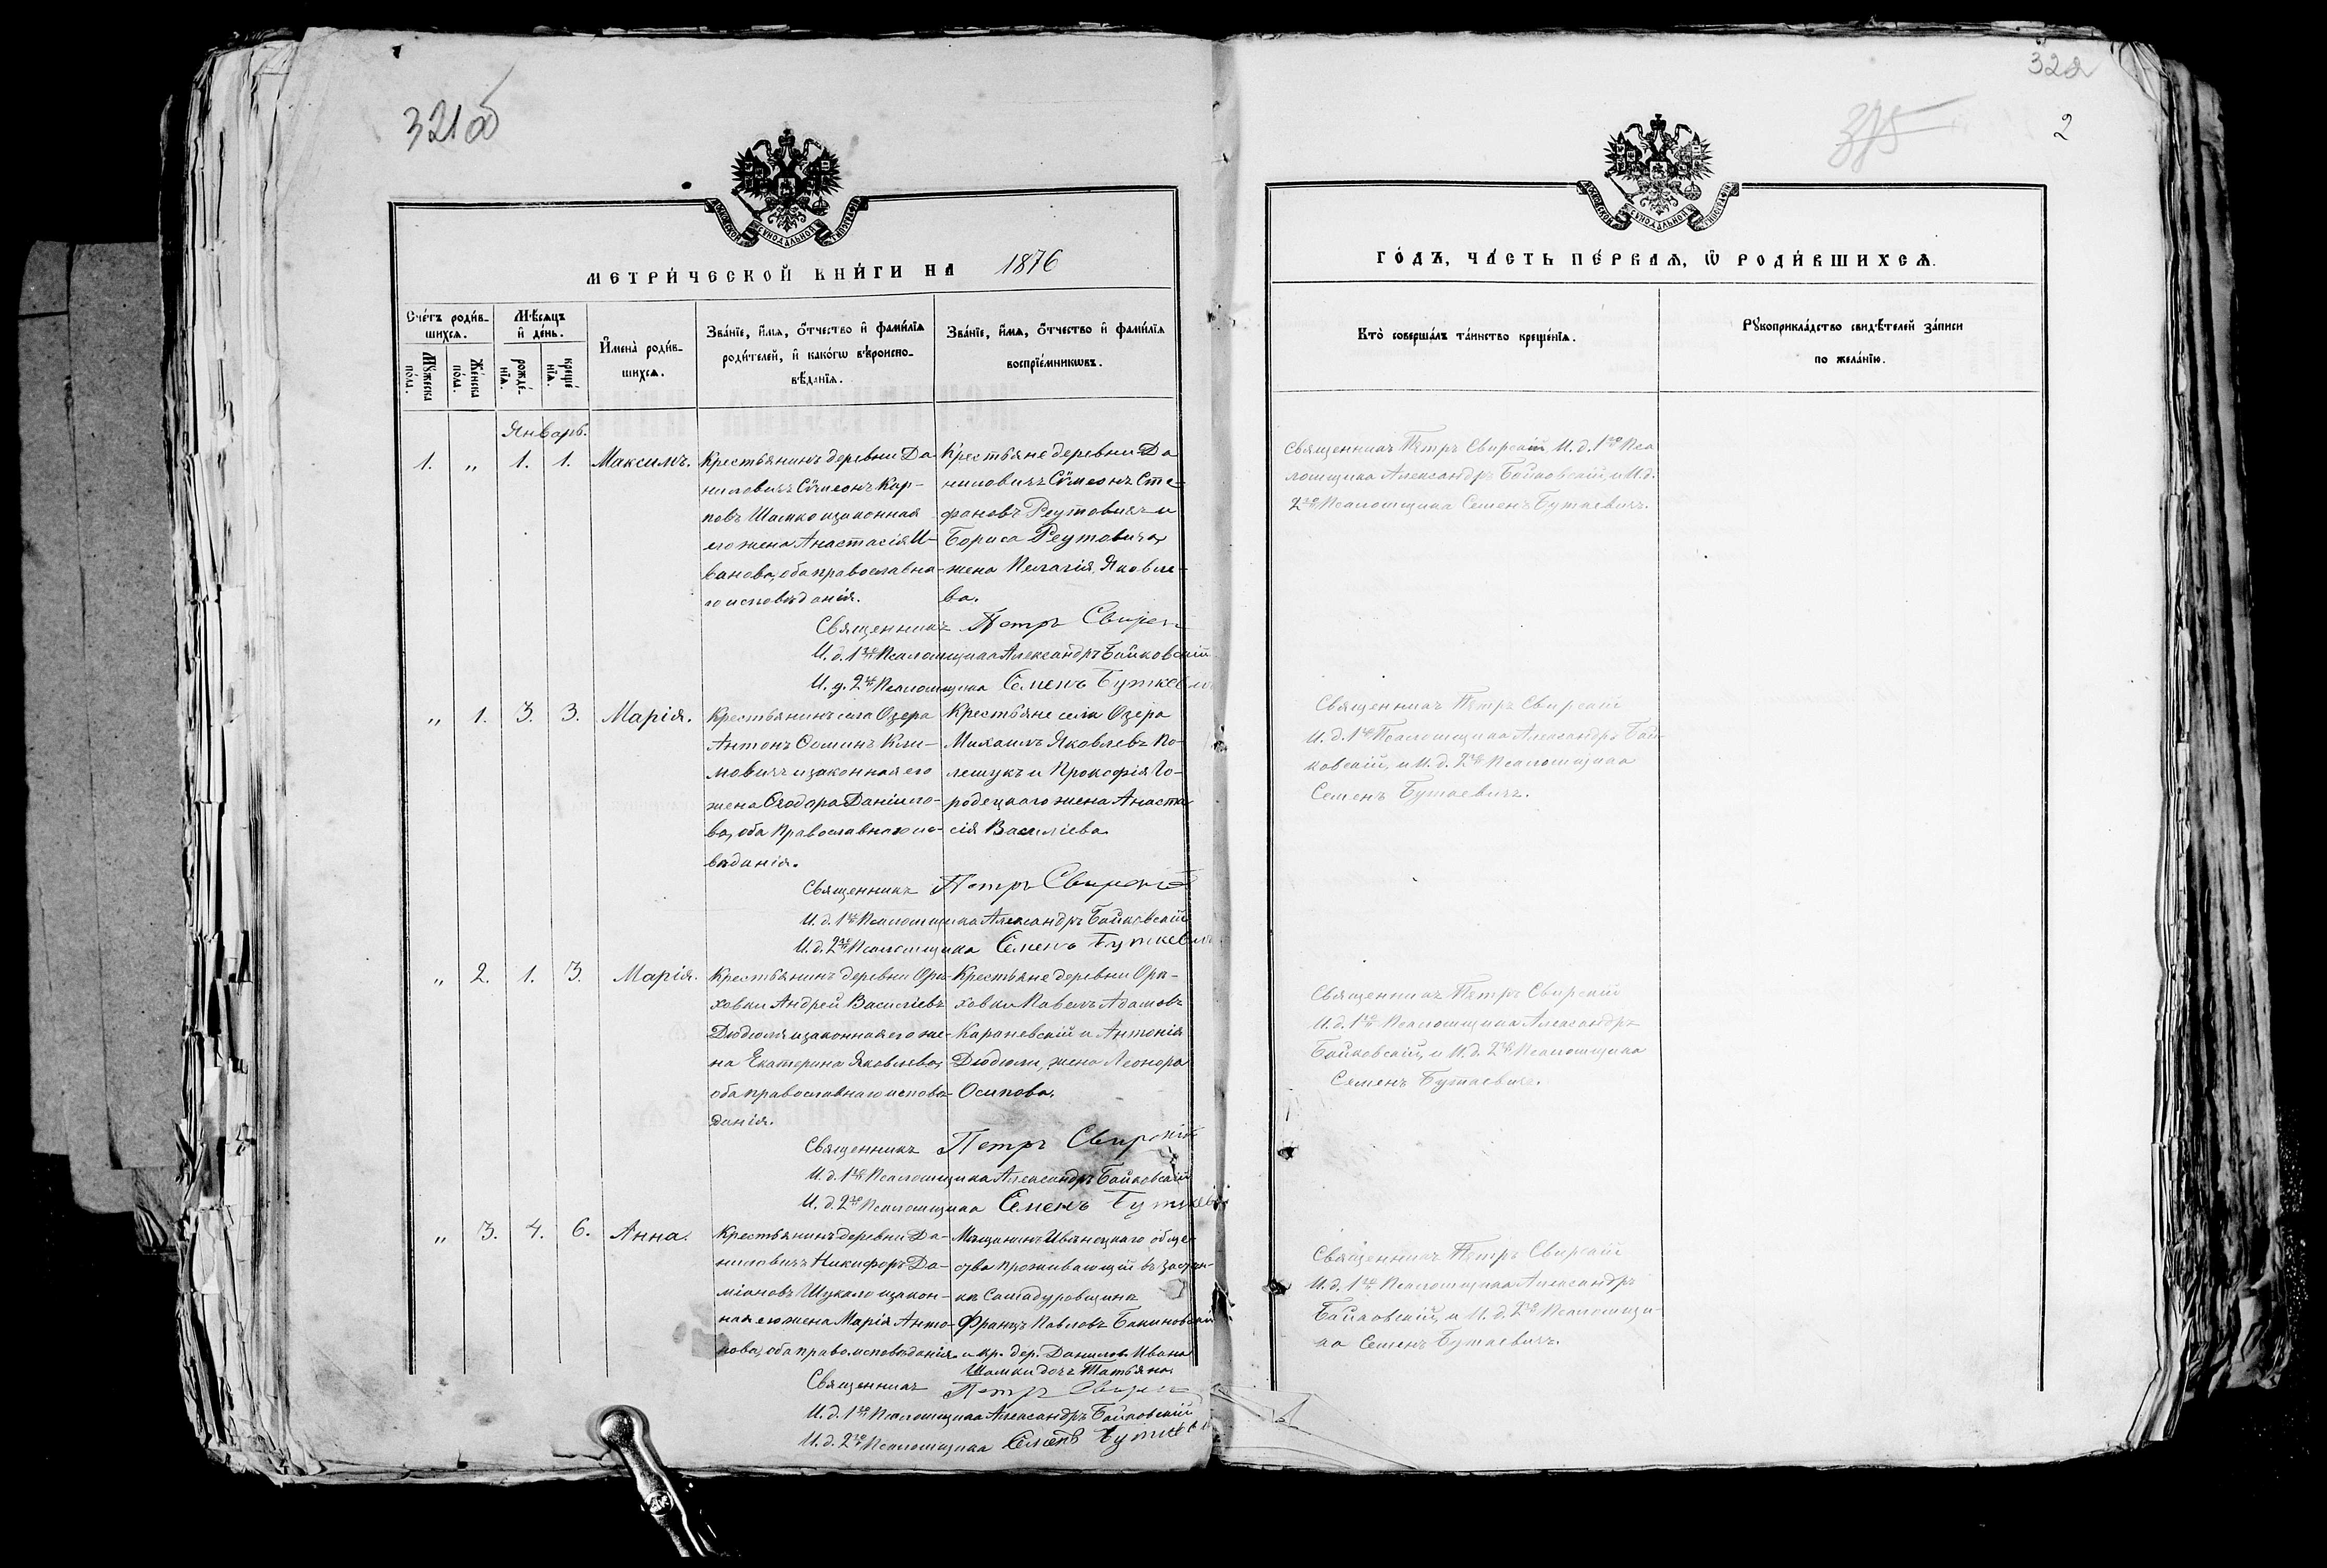 321об
322
375
2
МОСКОВСКОЙ СѴНОДАЛЬНОЙ ТИПОГРАФІИ
МОСКОВСКОЙ СѴНОДАЛЬНОЙ ТИПОГРАФІИ
МЕТРИ́ЧЕСКОЙ КНИ́ГИ НА 1876
Сче́тъ роди́в-
шихсѧ.
Мꙋ́жеска
по́ла.
Же́нска
по́ла.
Мѣ́сѧцъ
и҆ де́нь.
рожде́-
нїѧ.
креще́-
нїѧ.
И҆мена̀ роди́в-
шихсѧ.
Зва́нїе, и҆́мѧ, ѻ҆́тчество и҆ фамі́лїѧ
роди́телей, и҆ како́гѡ вѣроиспо-
вѣ́данїѧ.
Зва́нїе, и҆́мѧ, ѻ҆́тчество и҆ фамі́лїѧ
воспрїе́мникѡвъ.
Январь.
1. „ 1. 1. Максимъ.
Крестьянинъ деревни Да-
ниловичъ Сѵмеонъ Кар-
повъ Шамко изаконная
его жена Анастасія И-
ванова, оба православна-
го исповѣданія.
Крестьяне деревни Да
ниловичъ Сѵмеонъ Сте-
фановъ Реутовичъ и
Бориса Реутовича
жена Пелагія Яковле-
ва.
Священникъ Петръ Свирскій
И. д. 1го Псаломщика Александръ Байковскій
И. д. 2го Псаломщика Семенъ Буткевичъ
„ 1. 3. 3. Марія.
Крестьянинъ села Озера
Антонъ Ѳоминъ Кли-
мовичъ и законная его
жена Ѳеодора Данiило-
ва, оба Православнаго испо-
вѣданія.
Крестьяне села Озера
Михаилъ Яковлевъ По-
лещукъ и Прокофія Го-
родецкаго жена Анаста-
сія Василіева.
Священникъ Петръ Свирскій
И. д. 1го Псаломщика Александръ Байковскій
И. д. 2го Псаломщика Семенъ Буткевичъ
„ 2. 1. 3. Марія.
Крестьянинъ деревни Орѣ-
ховки Андрей Василіевъ
Дюдюля изаконная его же-
на Екатерина Яковлева,
оба православнаго исповѣ-
данія.
Крестьяне деревни Орѣ-
ховки Павелъ Адамовъ
Караневскій и Антонія
Дюдюли, жена Леонора
Осипова.
Священникъ Петръ Свирскій
И. д. 1го Псаломщика Александръ Байковскій
И. д. 2го Псаломщика Семенъ Буткевичъ
„ 3. 4. 6. Анна.
Крестьянинъ деревни Да-
ниловичъ Никифоръ Да-
міановъ Шукало изакон-
ная его жена Марія Анто-
нова, оба правол. исповѣданія.
Мѣщанинъ Ивянецкаго обще-
ства проживающій въ застѣн-
кѣ Самадуровщинѣ
Францъ Павловъ Бакиновскій
и кр. дер. Данилов. Ивана
Шамки дочь Татьяна.
Священникъ Петръ Свирскій
И. д. 1го Псаломщика Александръ Байковскій
И. д. 2го Псаломщика Семенъ Буткевичъ
ГО́ДЪ, ЧА́СТЬ ПЕ́РВАѦ, Ѿ РОДИ́ВШИХСѦ.
Кто̀ соверша́лъ та́инство креще́нїѧ.
Рꙋкоприкла́дство свидѣ́телей за́писи
по жела́нїю.
Священникъ Петръ Свирскій, И. д. 1го Пса
ломщика Александръ Байковскій, и И. д.
2го Псаломщика Семенъ Буткевичъ.
Священникъ Петръ Свирскій
И. д. 1го Псаломщика Александръ Бай
ковскій, и И. д. 2го Псаломщика
Семенъ Буткевичъ.
Священникъ Петръ Свирскій
И. д. 1го Псаломщика Александръ
Байковскій, и И. д. 2го Псаломщика
Семенъ Буткевичъ.
Священникъ Петръ Свирскій
И. д. 1го Псаломщика Александръ
Байковскій, и И. д. 2го Псаломщи-
ка Семенъ Буткевичъ.